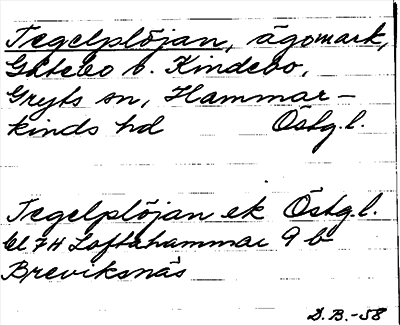 Tegelplöjan, ägomark,
Gåtebo o. Kindebo,
Gryts sn, Hammar-
kinds hd Östg.l.
Tegelplöjan ek Östg.l.
bl 7H Loftahammar 9 b
Breviksnäs
D.B.-58